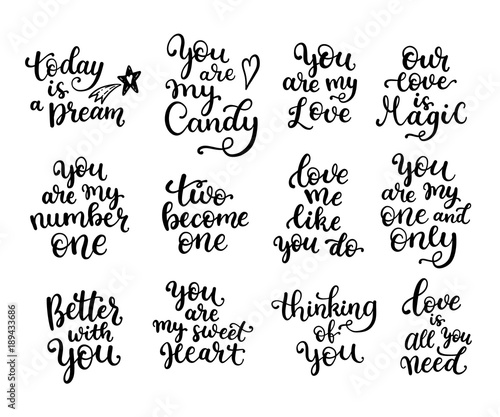 today
is
a Dream
You
are
my
Candy
You
are my
Love
Our
love
is
Magic
You
are my
number
one
two
become
one
love
me
like
you do
You
are my
one and
only
Better
with
You
You
are
my sweet
Heart
thinking
of
You
love
is
all you
need
Adobe Stock | #189433686